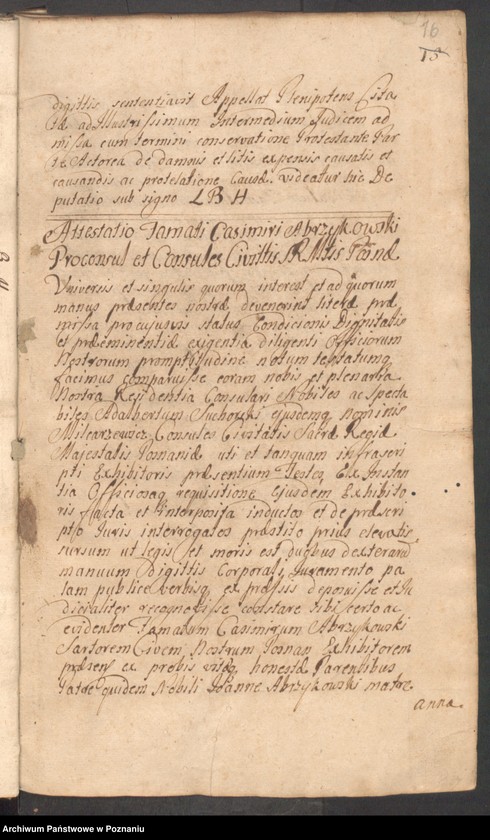 16
15
digittis sententiavit Appellat Plenipotens Cita
tæ ad Illustrissimum Intermedium Judicem ad
missa cum termini conservatione Protestante Par
te Actorea de damnis et litis expensis causatis et
causandis ac protelatione Causæ. Videatur hic De
putatio sub signo L B H
Attestatio Famati Casimiri Abrzykowski
Proconsul et Consules Civittis SRMttis Posnæ
Universis et singulis quorum interest et ad quorum
manus præsentes nostræ devenerint literæ præ
missa pro cujusvis status Condicionis Dignitatis
et præeminentiæ exigentia diligenti Officiorum
Nostrorum promptitudine notum testatumq
facimus comparuisse coram nobis et plenaria
Nostra Residentia Consulari Nobiles ac Specta
biles Adalbertum Suchorski ejusdemq nominis
Milcarzewicz Consules Civitatis Sacræ Regiæ
Majestatis Posnaniæ uti et tanquam infrascri
pti Exhibitoris præsentium Testes, Ex Instan
tia Officiosaq requisitione Ejusdem Exhibito
ris facta et Interposita inductos et de præscri
pto Juris interrogatos præstito prius elevatis
sursum ut legis et moris est duobus dexterarū
manuum digittis Corporali Juramento pa
lam publice verbisq ex pressis deposuisse et Ju
dicialiter recognovisse constare sibi certo ac
evidenter Famatum Casimirum Abrzykowski
Sartorem Civem Nostrum Posnan Exhibitorem
præsen ex probis vitæq honestæ Parentibus
Patre quidem Nobili Joanne Abrzykowski matre
anna
Archiwum Państwowe w Poznaniu